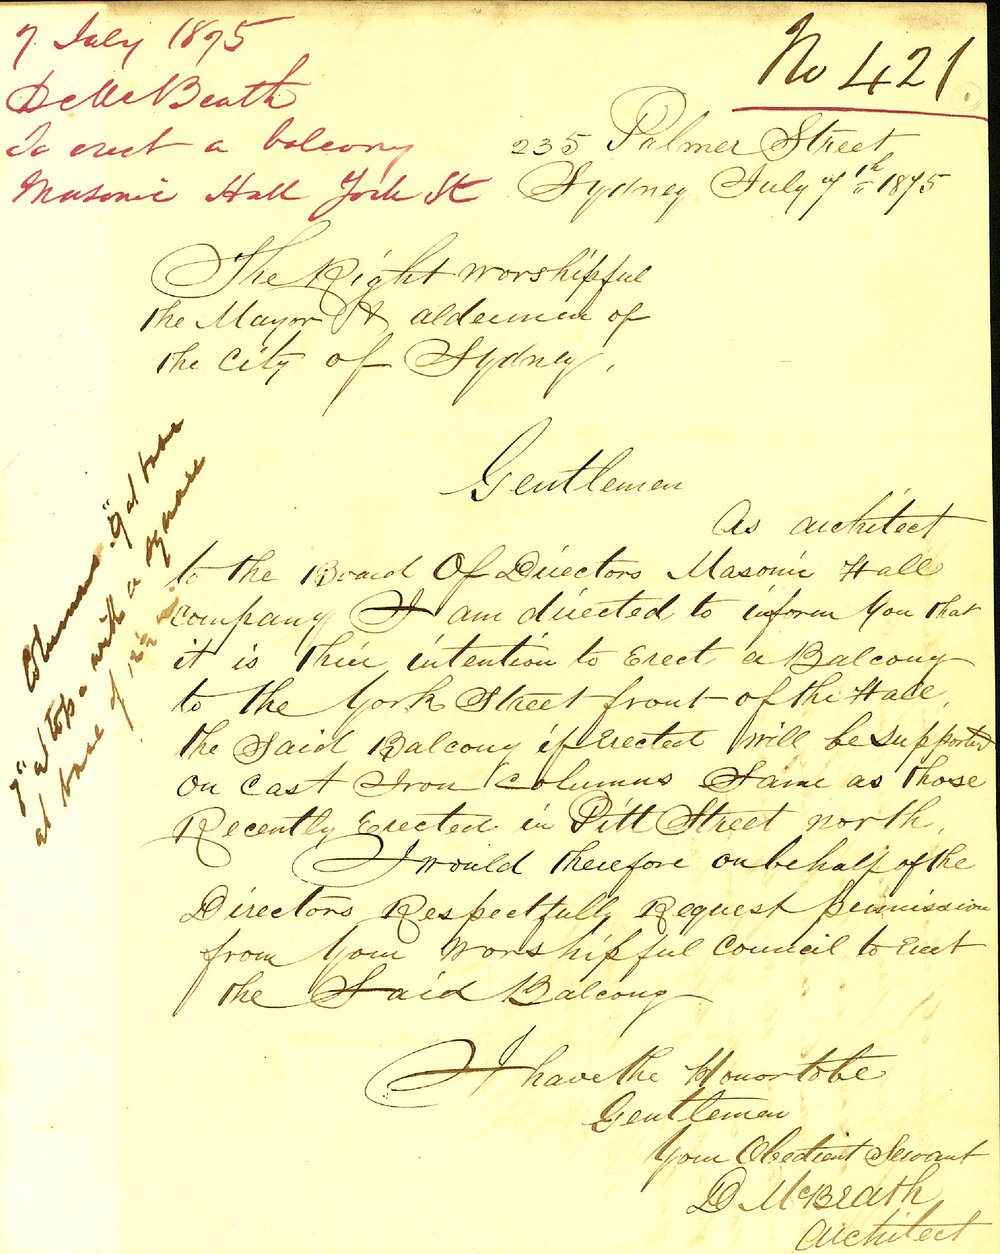 7 July 1875
D McBeath
To erect a balcony
Masonic Hall York St
No 421
235 Palmer Street
Sydney July 7th 1875
The Right Worshipful
the Mayor & aldermen of
the City of Sydney.
Gentlemen
As architect
to the Board Of Directors Masonic Hall
Company I am directed to inform You that
it is their intention to Erect a Balcony
to the York Street front of the Hall,
the Said Balcony if Erected will be Supported
on Cast Iron Columns Same as those
Recently Erected in Pitt Street north.
I would therefore on behalf of the
Directors Respectfully Request permission
from Your Worshipful Council to Erect
the Said Balcony
I have the Honor to be
Gentlemen
Your Obedient Servant
D McBeath
Architect
Columns 9" at base
7" at top with a square
at base of 12½